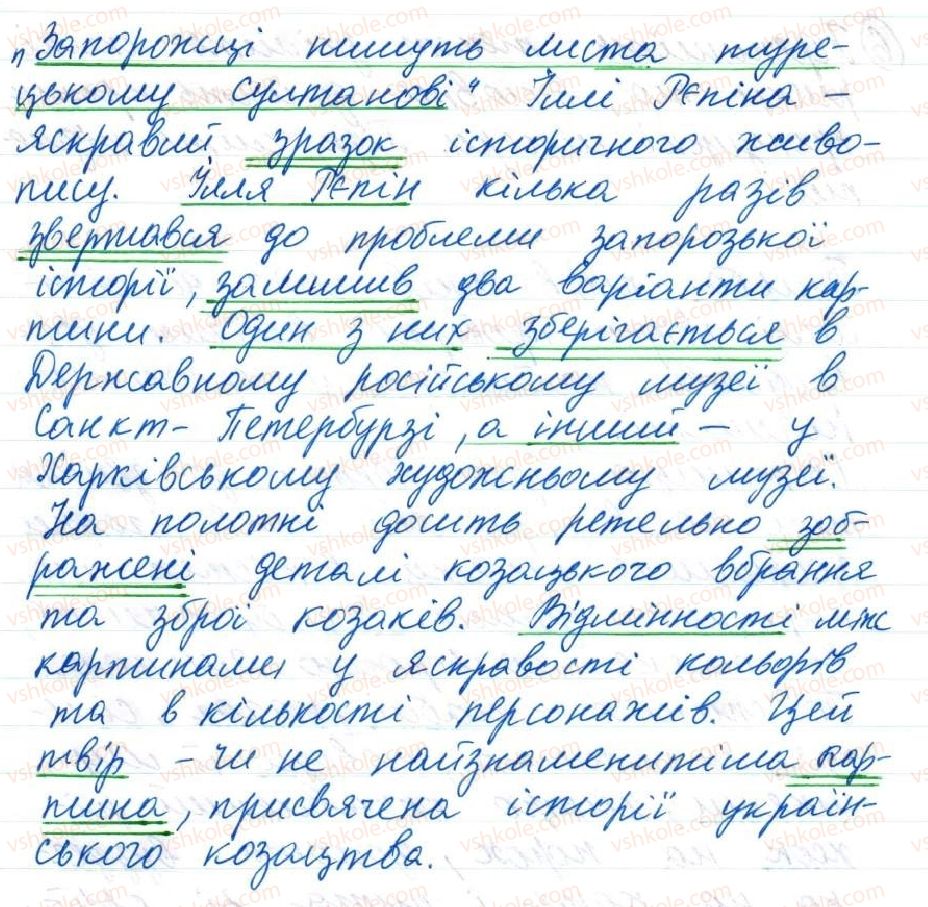 „Запорожці пишуть листа туре-
цькому султанові" Іллі Рєпіна –
яскравий зразок історичного живо-
пису. Ілля Рєпін кілька разів
звертався до проблеми запорозької
історії, залишив два варіанти кар-
тини. Один з них зберігається в
Державному російському музеї в
Санкт-Петербурзі, а інший – у
Харківському художньому музеї.
На полотні досить ретельно зоб-
ражені деталі козацького вбрання
та зброї козаків. Відмінності між
картинами у яскравості кольорів
та в кількості персонажів. Цей
твір – чи не найзнаменитіша кар-
тина, присвячена історії україн-
ського козацтва.